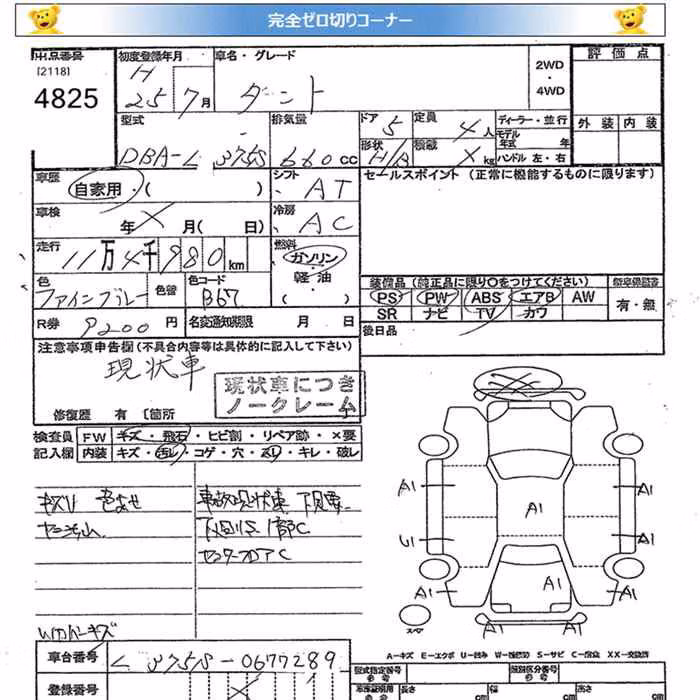 完全ゼロ切りコーナー
出品番号 初度登録年月 車名・グレード 2WD ・ 4WD 評価点
[2118]
4825 H 25 7月 タント
型式 排気量 ドア 5 定員 4人 ディーラー・並行 外装 内装
モデル年式 年
DBA-L375S 660cc 形状 H/B 積載 X kg ハンドル 左・右
車歴 自家用・( ) シフト AT セールスポイント (正常に機能するものに限ります)
車検 年 X 月( 日) 冷房 AC
走行 11万4千980km 燃料 ガソリン・軽油・( )
装備品 (純正品に限り○をつけてください)
色 ファインブルー 色替 色コード B67 PS PW ABS エアB AW 有・無
SR ナビ TV カワ
R券 9200円 名変通知期限 月 日 後日品
注意事項申告欄(不具合内容等は具体的に記入して下さい)
現状車
現状車につき
ノークレーム
修復歴 有 〔箇所
検査員 FW キズ・飛石・ヒビ割・リペア跡・×要
記入欄 内装 キズ・汚レ・コゲ・穴・スレ・キレ・破レ
キズU 色あせ 事故現状車
センターフロアC
A1 A1 A1
U1 A1
A1 A1 A1
スペア
A-キズ E-エクボ U-凹み W-補修跡 S-サビ C-腐食 XX-交換済
車台番号 L375S-0677289 型式指定番号 参考 類別区分番号 参考
登録番号 長さ cm 幅 cm 高さ cm